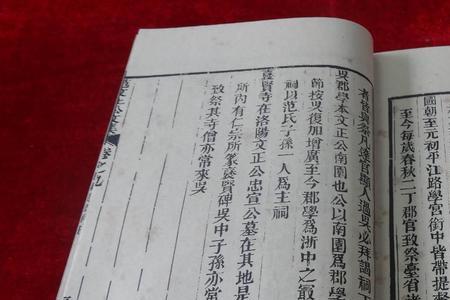 國朝至元初平江路學宮銜中皆帶提
至今每歲春秋二丁郡官致祭臺省
吳郡學本文正公南園也公以南園爲郡學
節按吳復加增廣至今郡學爲浙中之最
祠以范氏子孫一人爲主祠
褒賢寺在洛陽文正公忠宣公墓在其地是
所內有仁宗所篆褒賢碑吳中子孫亦常
致祭其寺僧亦常來吳
卷之九